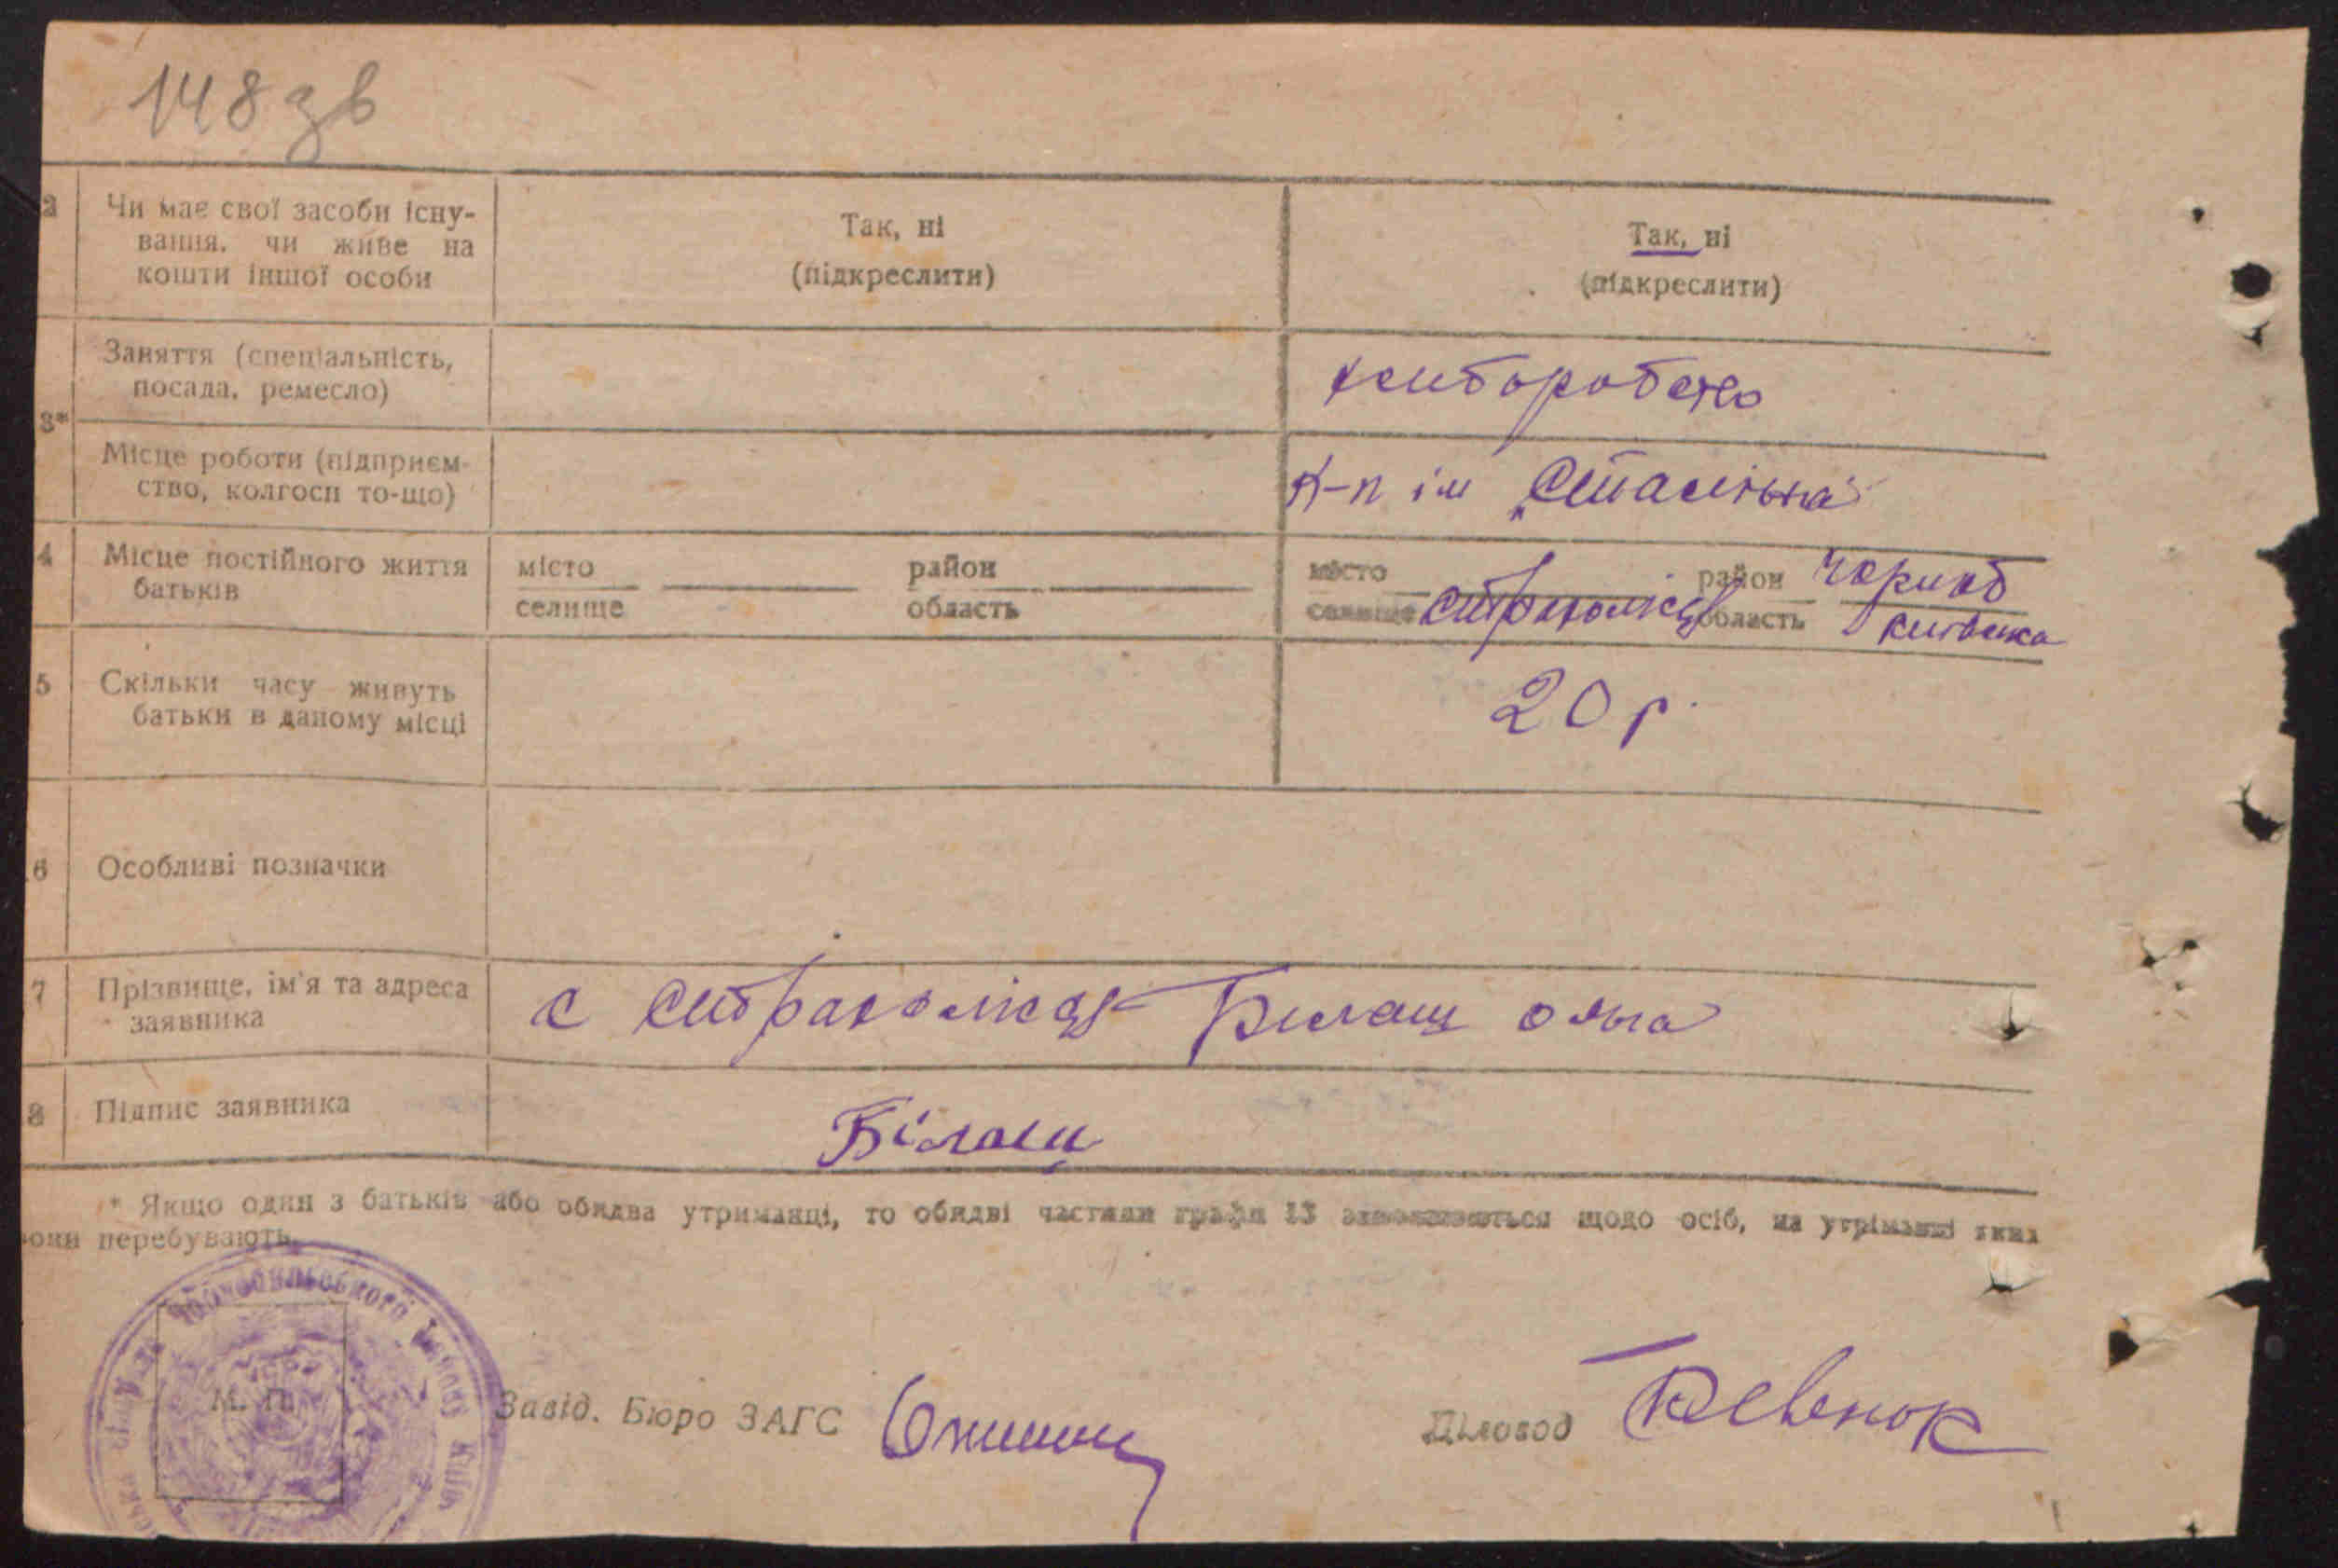 148 зв
2 Чи має свої засоби існу-
вання, чи живе на
кошти іншої особи
Так, ні
(підкреслити)
Так, ні
(підкреслити)
3*
Заняття (спеціальність,
посада, ремесло)
хлiборобство
Місце роботи (підприєм-
ство, колгосп то-що)
К-п ім „Сталіна"
4 Місце постійного життя
батьків
місто
селище
район
область
місто
селище Страхолісся
район Чорноб
область Київська
5 Скільки часу живуть
батьки в даному місці
20 р.
6 Особливі позначки
7 Прізвище, ім'я та адреса
заявника
с Страхолісся Билаш Ольга
8 Підпис заявника
Білаш
* Якщо один з батьків або обидва утриманці, то обидві частини графи 13 заповнюються щодо осіб, на утриманні яких
вони перебувають.
Чорнобильського
М. П.
Завід. Бюро ЗАГС
Діловод